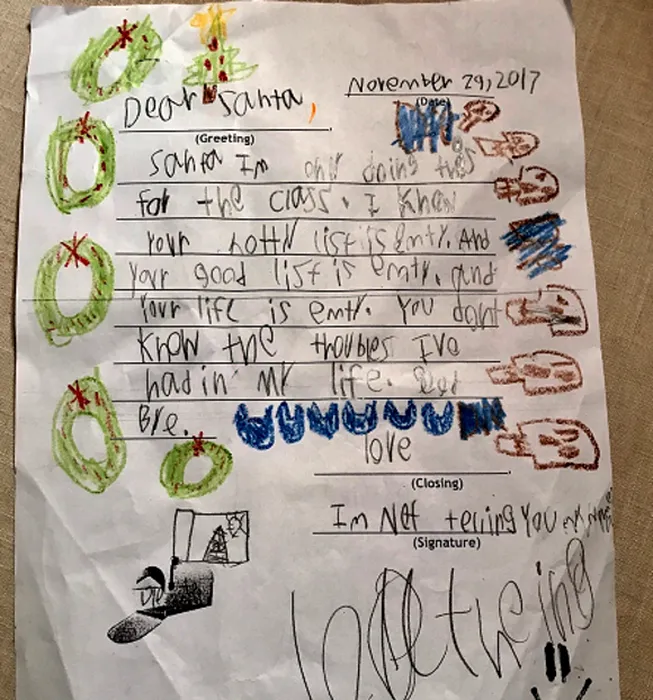 November 29, 2017
(Date)
Dear Santa,
(Greeting)
Santa Im only doing this
for the class. I Know
your notty list is Emty. And
your good list is emty. and
Your life is emty. You dont
Know the troubles Ive
had in my life. Bad
Bye.
love
(Closing)
Im Not telling You my name
(Signature)